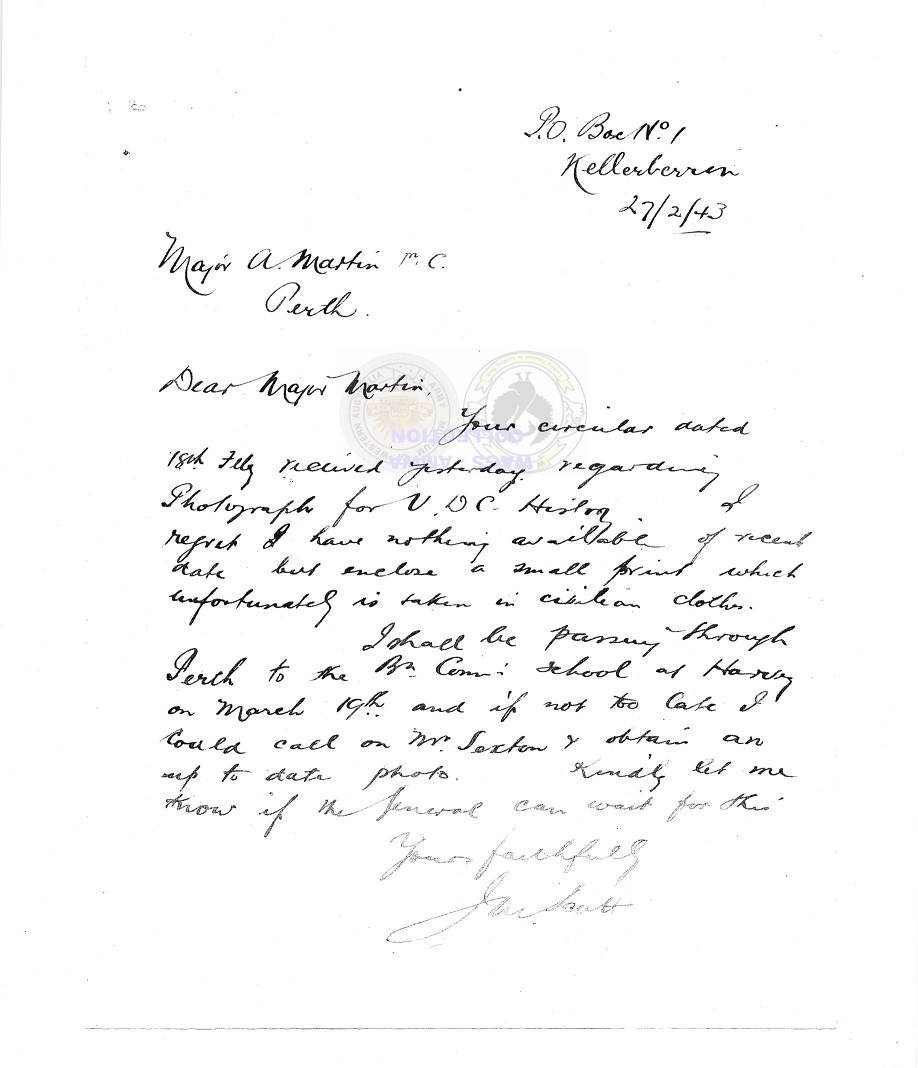 P.O. Box No. 1
Kellerberrin
27/2/43
Major A. Martin M.C.
Perth.
Dear Major Martin,
Your circular dated
18th Feby recieved yesterday regarding
Photograph for V.D.C. History I
regret I have nothing available of recent
date but enclose a small print which
unfortunately is taken in civilian clothes.
I shall be passing through
Perth to the Bn. Com: School at Harvey
on March 19th and if not too late I
could call on Mr. Sexton & obtain an
up to date photo. Kindly let me
know if the General can wait for this
Yours faithfully
Scott
WESTERN AUSTRALIA ARMY MUSEUM
WAGS - AMWA
COLLECTION